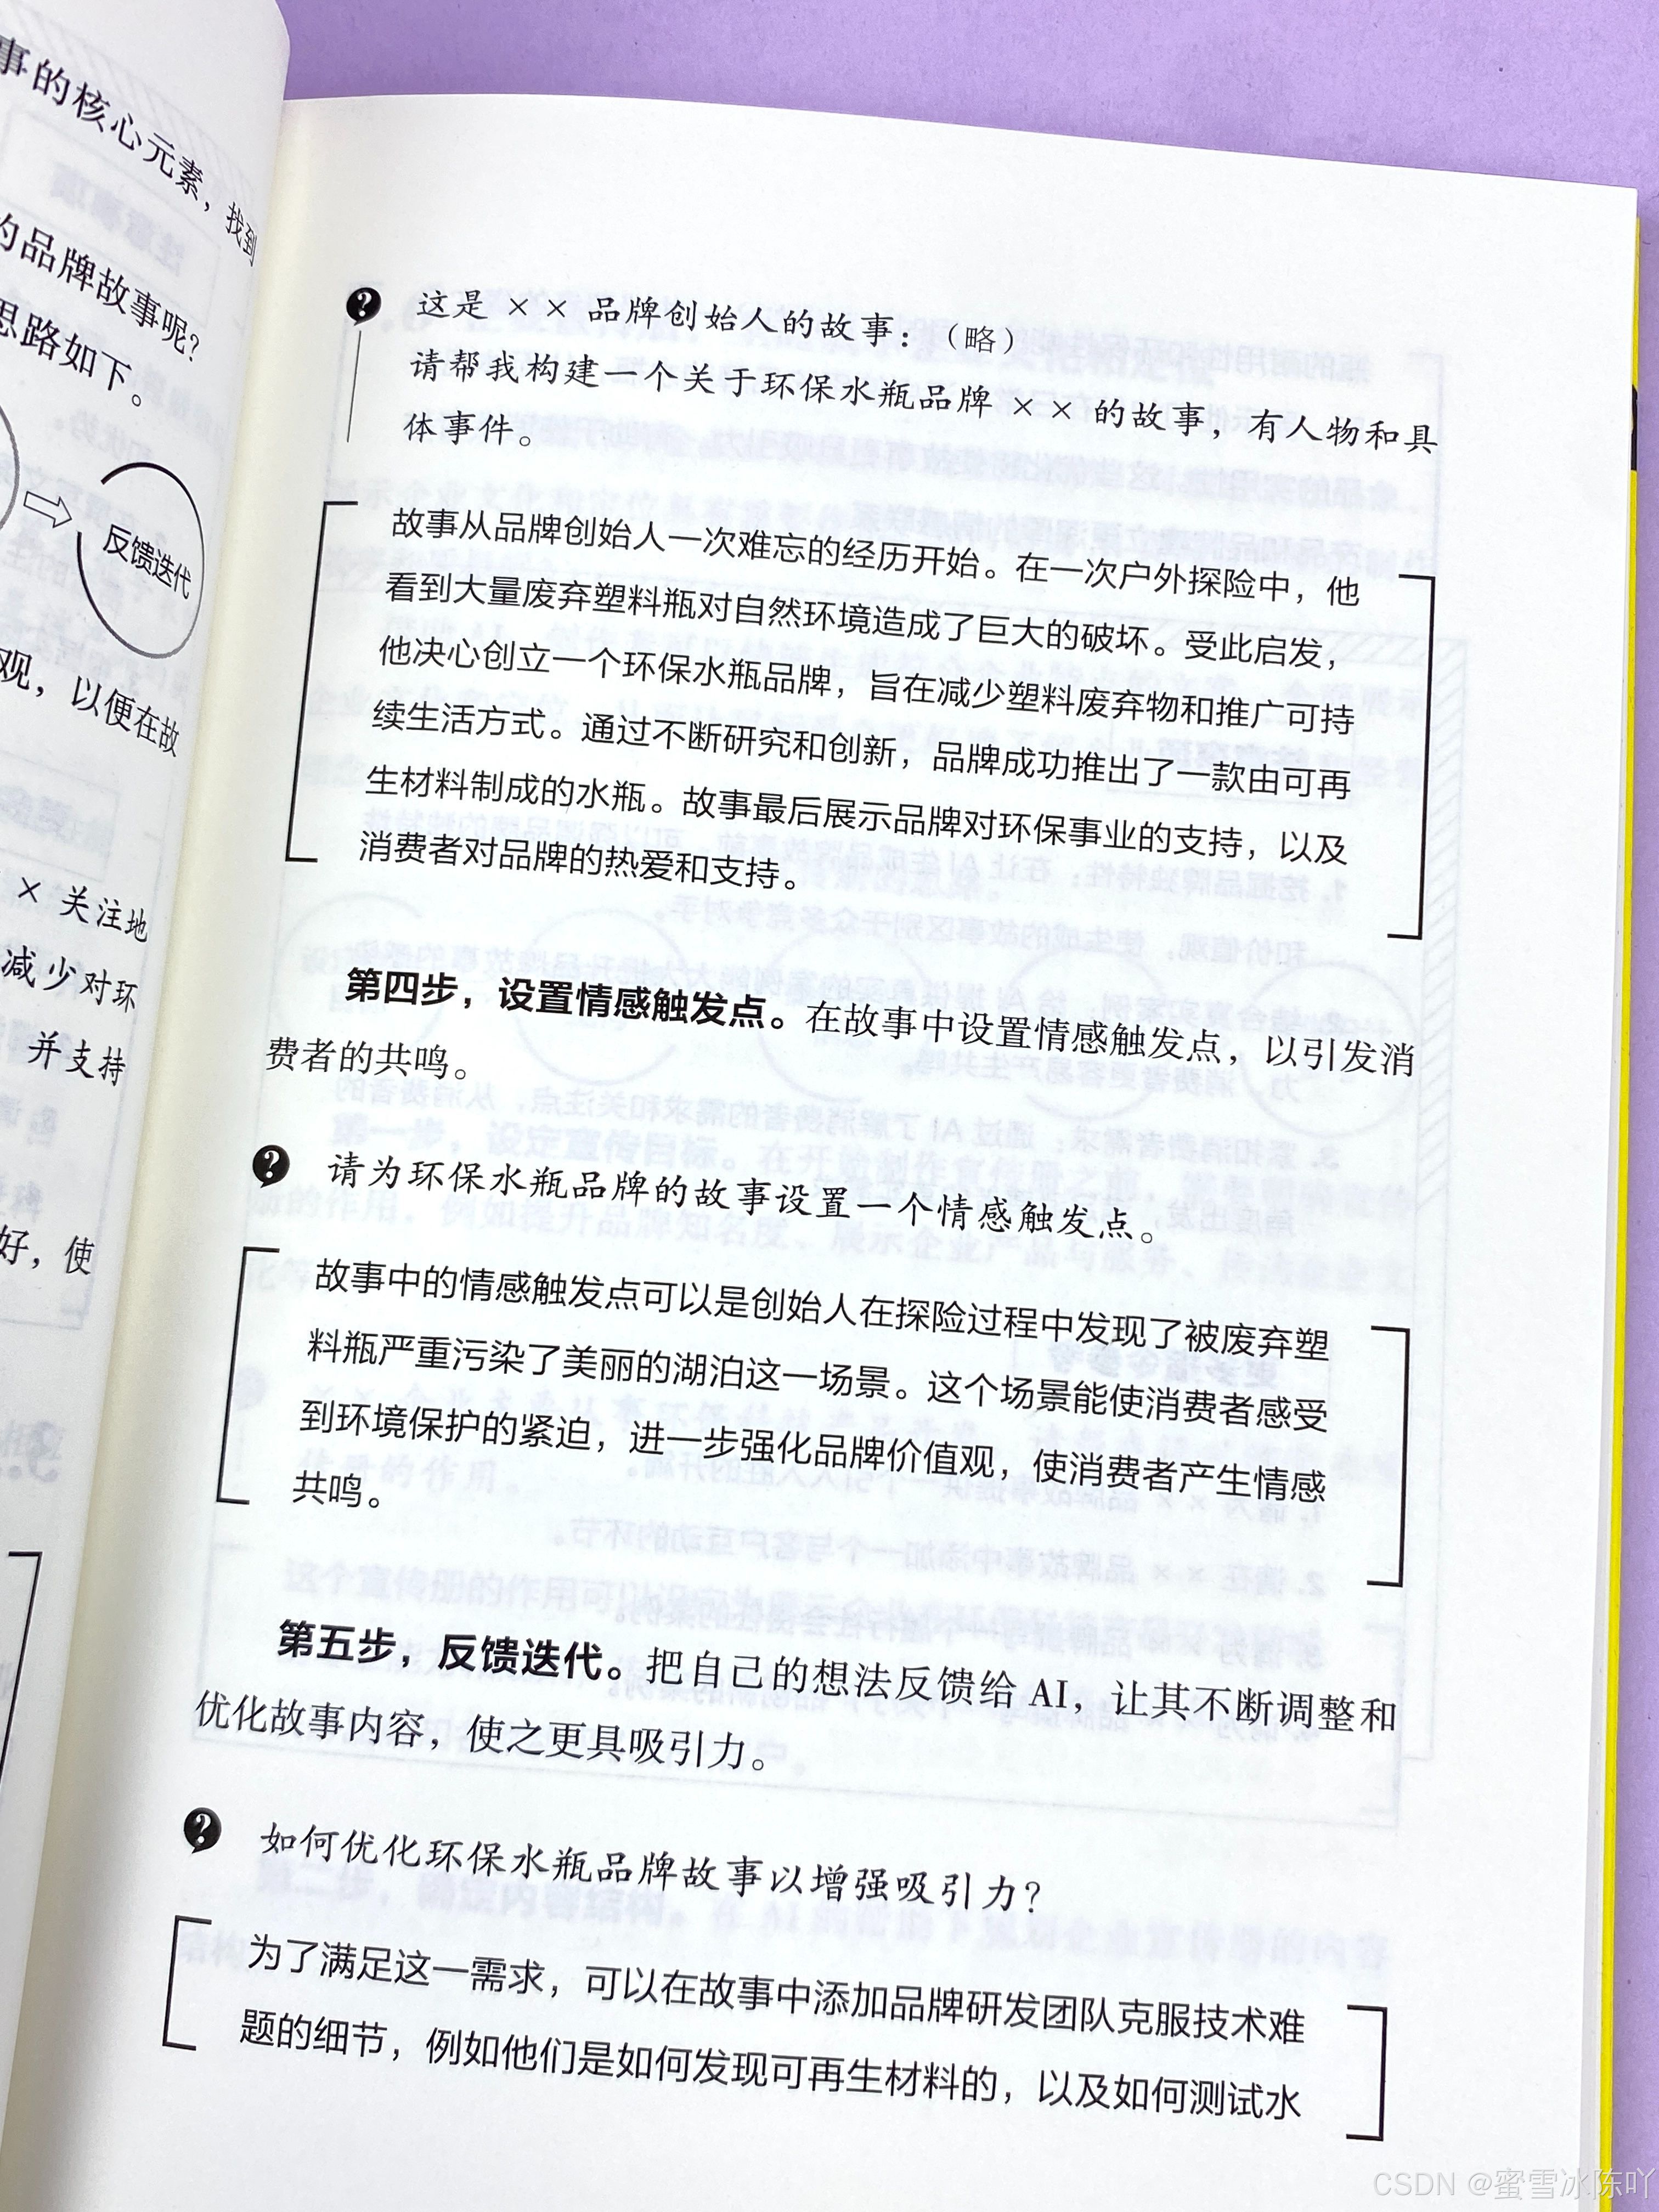 事的核心元素，找到
的品牌故事呢？
思路如下。
反馈迭代
观，以便在故
× 关注地
减少对环
并支持
好，使
? 这是 ×× 品牌创始人的故事：（略）
请帮我构建一个关于环保水瓶品牌 ×× 的故事，有人物和具
体事件。
故事从品牌创始人一次难忘的经历开始。在一次户外探险中，他
看到大量废弃塑料瓶对自然环境造成了巨大的破坏。受此启发，
他决心创立一个环保水瓶品牌，旨在减少塑料废弃物和推广可持
续生活方式。通过不断研究和创新，品牌成功推出了一款由可再
生材料制成的水瓶。故事最后展示品牌对环保事业的支持，以及
消费者对品牌的热爱和支持。
第四步，设置情感触发点。在故事中设置情感触发点，以引发消
费者的共鸣。
? 请为环保水瓶品牌的故事设置一个情感触发点。
故事中的情感触发点可以是创始人在探险过程中发现了被废弃塑
料瓶严重污染了美丽的湖泊这一场景。这个场景能使消费者感受
到环境保护的紧迫，进一步强化品牌价值观，使消费者产生情感
共鸣。
第五步，反馈迭代。把自己的想法反馈给 AI，让其不断调整和
优化故事内容，使之更具吸引力。
? 如何优化环保水瓶品牌故事以增强吸引力？
为了满足这一需求，可以在故事中添加品牌研发团队克服技术难
题的细节，例如他们是如何发现可再生材料的，以及如何测试水
CSDN @蜜雪冰陈吖